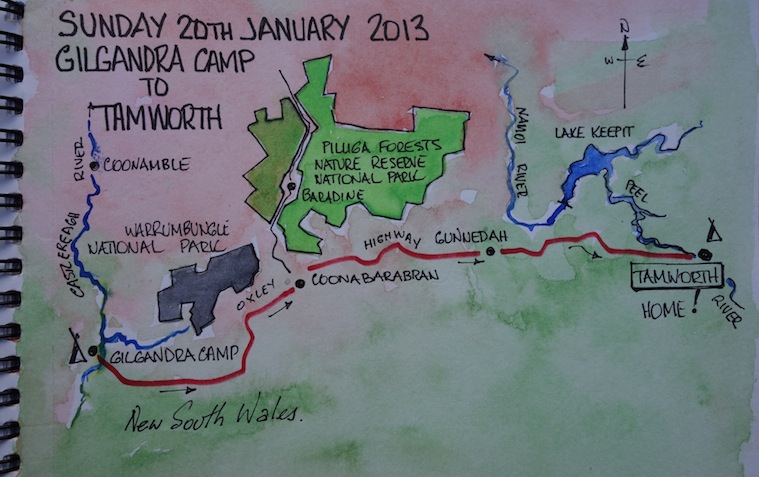 SUNDAY 20TH JANUARY 2013
GILGANDRA CAMP
TO
TAMWORTH
N
W E
CASTLEREAGH RIVER
COONAMBLE
PILLIGA FORESTS
NATURE RESERVE
NATIONAL PARK
BARADINE
NAMOI RIVER
LAKE KEEPIT
PEEL
WARRUMBUNGLE
NATIONAL PARK
OXLEY
HIGHWAY
GUNNEDAH
COONABARABRAN
TAMWORTH
HOME!
RIVER
GILGANDRA CAMP
New South Wales.